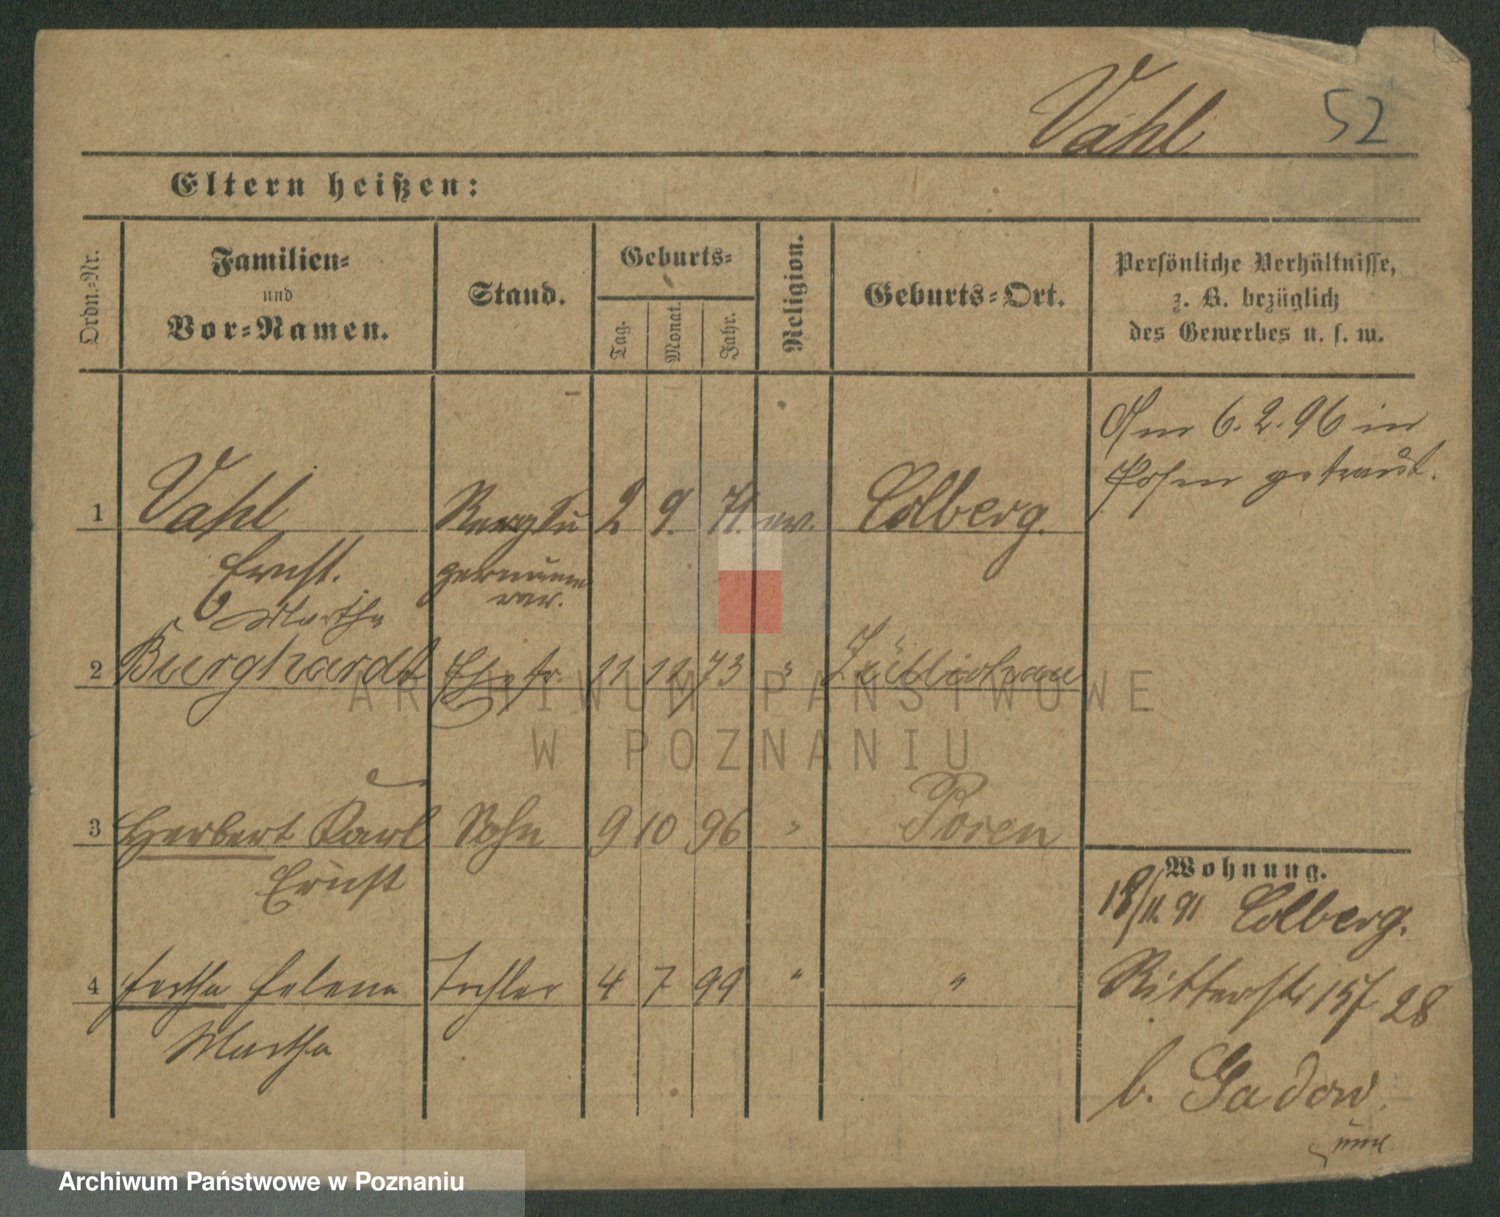 Vahl 52
Eltern heißen:
Ordn.-Nr. Familien- und Vor-Namen. Stand. Geburts- Tag. Monat. Jahr. Religion. Geburts-Ort. Persönliche Verhältnisse, z. B. bezüglich des Gewerbes u. s. w.
Am 6. 2. 96 in
Posen getraut.
1 Vahl 2 9. 71. ev. Colberg.
Ernst.
Martha
2 Burghardt Ehefr. 11 11 73 " Züllichau
3 Herbert Karl Sohn 9 10 96 " Posen
Ernst
Wohnung.
18/11. 91 Colberg.
4 Hertha Helene Tochter 4 7 99 " "
Martha
Ritterstr 15
28
b. Gadow
ARCHIWUM PAŃSTWOWE
W POZNANIU
Archiwum Państwowe w Poznaniu